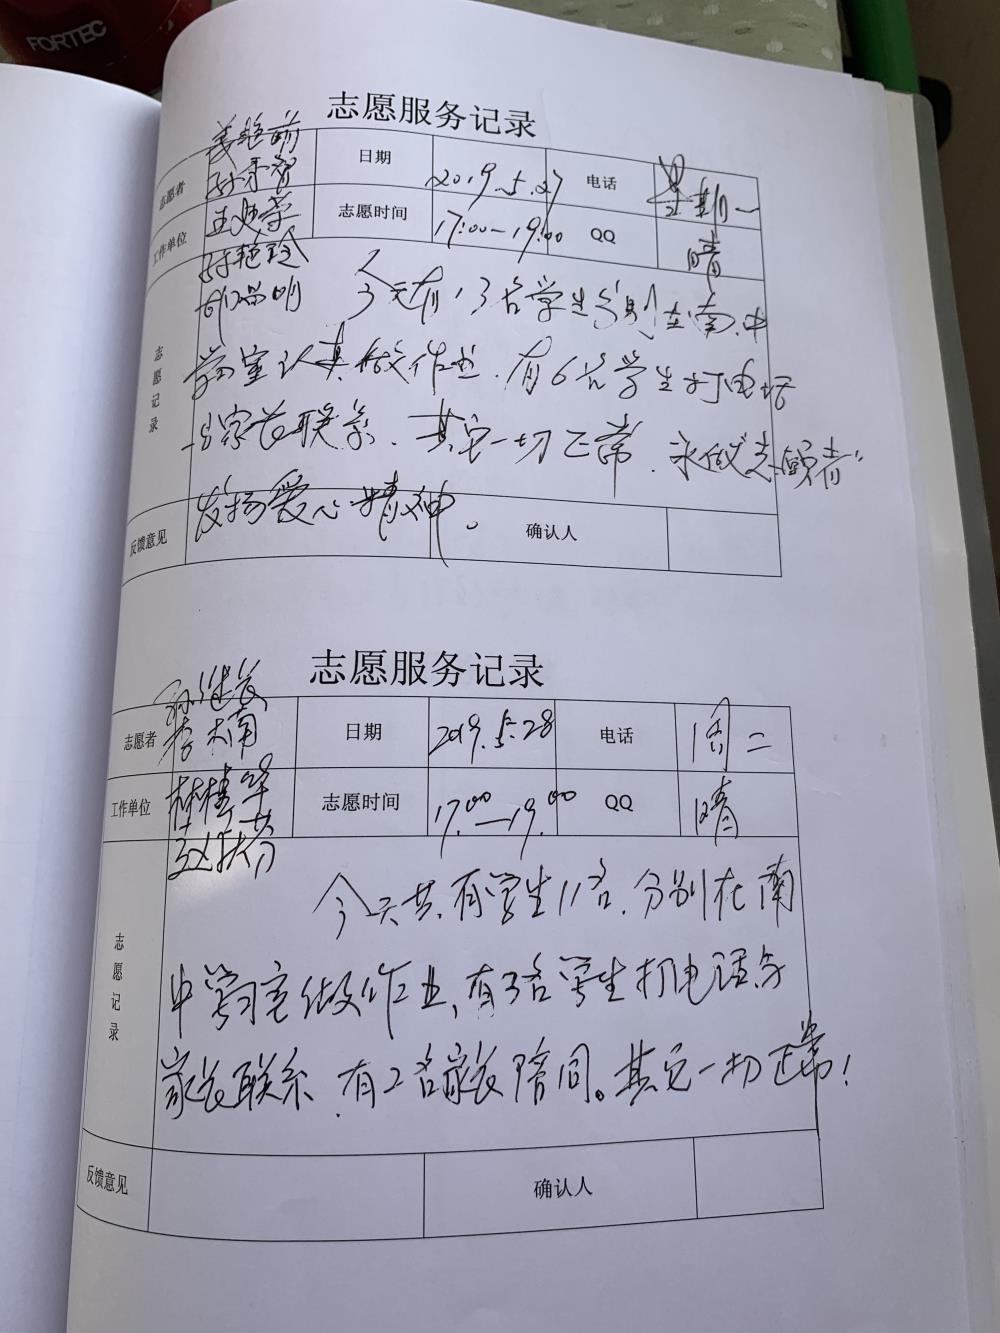 FORTEC
志愿服务记录
志愿者 日期 2019.5.27 电话 星期一
工作单位 志愿时间 17:00-19:00 QQ 晴
孙艳玲
志愿记录
今天有13名学生分别在南、中
学习室认真做作业.有6名学生打电话
与家长联系.其它一切正常.永做志愿者
发扬爱心精神。
反馈意见 确认人
志愿服务记录
孙继敏
志愿者 李楠 日期 2019.5.28 电话 周二
工作单位 林桂华 志愿时间 17:00-19:00 QQ 晴
志愿记录
今天共有学生11名.分别在南
中学习室做作业,有3名学生打电话与
家长联系.有2名家长陪同。其它一切正常!
反馈意见 确认人